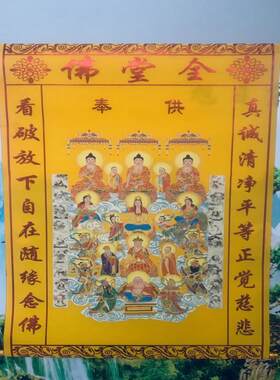 全堂佛
供奉
真诚清净平等正觉慈悲
看破放下自在随缘念佛